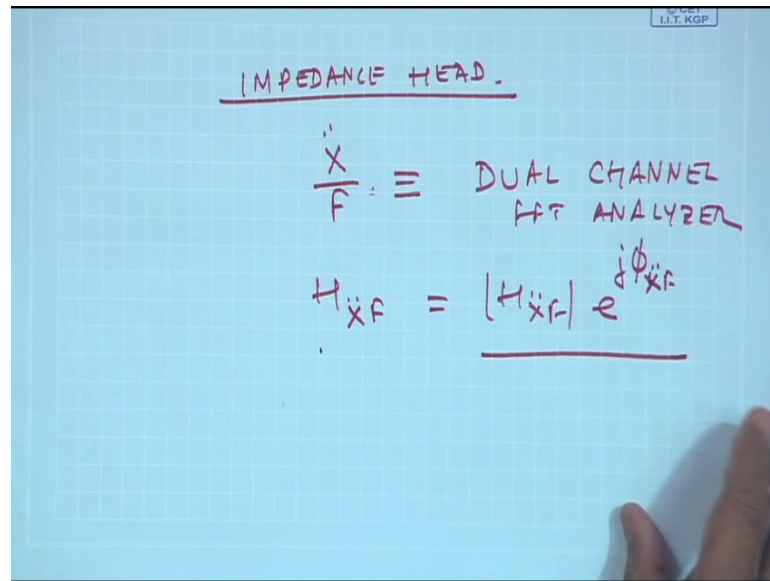 © CET
I.I.T. KGP
IMPEDANCE HEAD.
Ẍ/F ≡ DUAL CHANNEL
FFT ANALYZER
H_ẌF = |H_ẌF| e^jϕ_ẌF